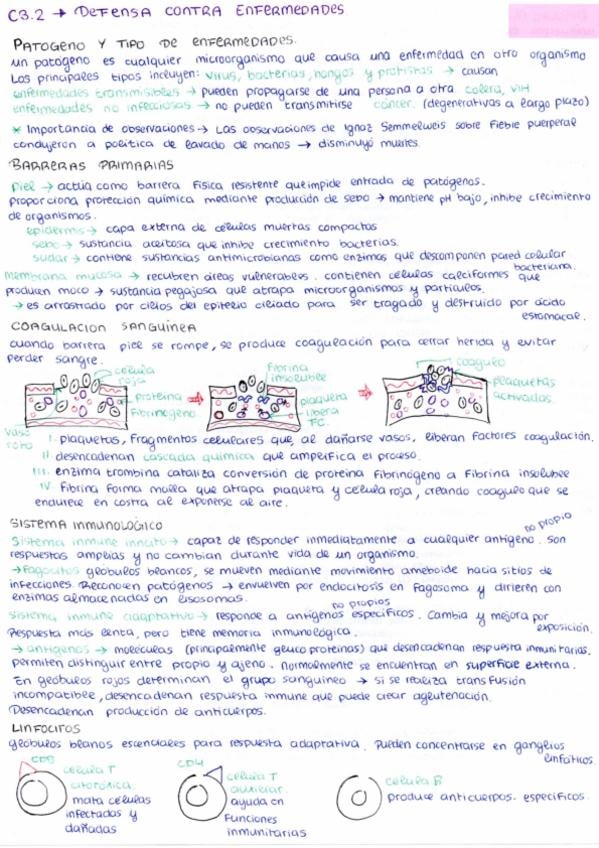 C3.2 → DEFENSA CONTRA ENFERMEDADES
PATOGENO Y TIPO DE ENFERMEDADES.
un patogeno es cualquier microorganismo que causa una enfermedad en otro organismo
Los principales tipos incluyen: virus, bacterias, hongos y protistas → causan
enfermedades transmisibles → pueden propagarse de una persona a otra colera, VIH
enfermedades no infecciosas → no pueden transmitirse cancer. (degenerativas a largo plazo)
* Importancia de observaciones → Las observaciones de Ignaz Semmelweis sobre Fiebre puerperal
condujeron a politica de lavado de manos → disminuyó muertes.
BARRERAS PRIMARIAS
piel → actúa como barrera Fisica resistente que impide entrada de patógenos.
proporciona protección química mediante producción de sebo → mantiene pH bajo, inhibe crecimiento
de organismos.
epidermis → capa externa de células muertas compactas
sebo → sustancia aceitosa que inhibe crecimiento bacterias.
sudar → contiene sustancias antimicrobianas como enzimas que descomponen pared celular
bacteriana.
membrana mucosa → recubren áreas vulnerables. contienen celulas caliciformes que
producen moco → sustancia pegajosa que atrapa microorganismos y particulas.
→ es arrastrado por cilios del epitelio ciliado para ser tragado y destruido por ácido
estomacal.
COAGULACION SANGUINEA
cuando barrera piel se rompe, se produce coagulación para cerrar herida y evitar
perder sangre.
célula
roja
proteína
Fibrinógeno
vaso
roto
fibrina
insoluble
plaqueta
libera
FC.
coagulo
plaquetas
activadas.
I. plaquetas, fragmentos celulares que al dañarse vasos, liberan factores coagulación.
II. desencadenan cascada química que amplifica el proceso.
III. enzima trombina cataliza conversión de proteina Fibrinógeno a Fibrina insoluble
IV. Fibrina Forma malla que atrapa plaqueta y celula roja, creando coagulo que se
endurece en costra al exponerse al aire.
SISTEMA INMUNOLÓGICO
no propio
Sistema inmune innato → capaz de responder inmediatamente a cualquier antígeno. son
respuestas amplias y no cambian durante vida de un organismo.
→ Fagocitos glóbulos blancos, se mueven mediante movimiento ameboide hacia sitios de
infecciones. Reconocen patógenos → envuelven por endocitosis en Fagosoma y dirieren con
enzimas almacenadas en lisosomas.
no propios
Sistema inmune adaptativo → responde a antigenos especificos. Cambia y mejora por
exposición.
Respuesta más lenta, pero tiene memoria inmunológica.
→ antígenos → moléculas (principalmente gluco proteinas) que desencadenan respuesta inmunitarias.
permiten distinguir entre propio y ajeno. normalmente se encuentran en superficie externa.
En glóbulos rojos determinan el grupo sanguineo → si se realiza transfusión
incompatible, desencadenan respuesta inmune que puede crear aglutenación.
Desencadenan producción de anticuerpos.
LINFOCITOS
glóbulos blanos escenciales para respuesta adaptativa. Pueden concentrarse en ganglios
linfáticos.
CD8
célula T
citotóxica.
mata células
infectadas y
dañadas
CD4
célula T
auxiliar.
ayuda en
Funciones
inmunitarias
celula B
produce anticuerpos. especificos